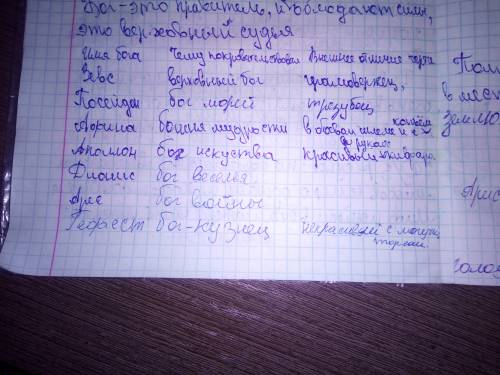 Бог-это правитель, и обладают силы,
это верховный судья
Имя бога Чему покровительствовал Внешнее отличие черты
Зевс верховный бог громовержец,
Посейдон бог морей трезубец
Афина богиня мудрости в боевом шлеме и с копьём в руках
Аполлон бог искусства красивый кифара
Дионис бог веселья
Арес бог войны
Гефест бог-кузнец некрасивый с
в мест
Землю
Арис
голод